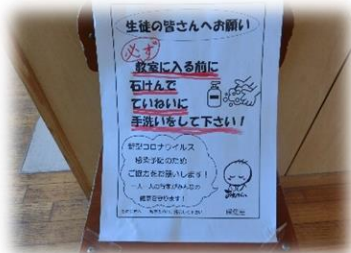 生徒の皆さんへお願い
必ず
教室に入る前に
石けんで
ていねいに
手洗いをして下さい!
新型コロナウイルス
感染予防のため
ご協力をお願いします!
一人一人の行動がみんなの
健康を守ります!
保健室